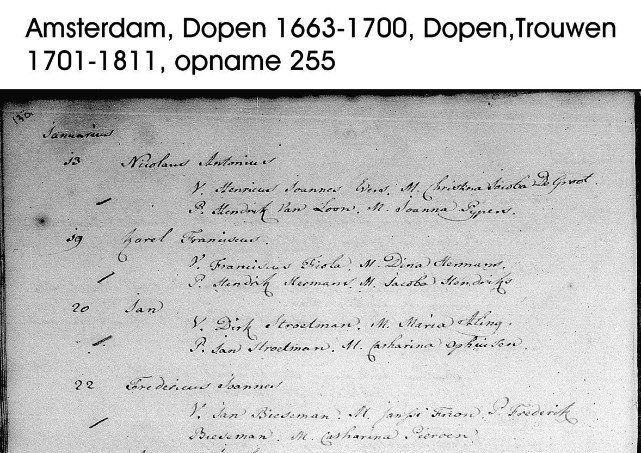 Amsterdam, Dopen 1663-1700, Dopen,Trouwen
1701-1811, opname 255
Januarius
13 Nicolaus Antonius
V. Henricus Joannes Evers. M. Christina Jacoba De Groot.
P. Hendrik Van Loon. M. Joanna Pypers.
19 Karel Franciscus.
V. Franciscus Fiola. M. Dina Hermans.
P. Hendrik Hermans. M. Jacoba Hendriks
20 Jan
V. Dirk Stroetman. M. Maria
P. Jan Stroetman. M. Catharina Ophuisen.
22 Fredericus Joannes
V. Jan Bieseman. M. P. Frederik
Bieseman. M. Catharina Pierven